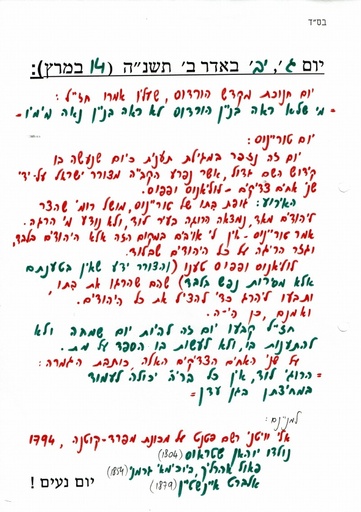 בס"ד
יום ג', יב' באדר ב' תשנ"ה (14 במרץ):
יום חנוכת מקדש הורדוס, שעליו אמרו חז"ל:
- מי שלא ראה בנין הורדוס לא ראה בנין נאה מימיו -
יום טוריינוס:
יום זה נזכר במגילת תענית כיום שנעשה בו
קידוש השם גדול, אשר נפרע הקב"ה מצורר ישראל על-ידי
שני אחים צדיקים - לוליאנוס ופפוס.
האירוע: גופת בתו של טוריינוס, מושל רומי שהצר
ליהודים מאד, נמצאה הרוגה בעיר לוד, ולא נודע מי הרגה.
אמר טוריינוס - אין לי אויבים במקום הזה אלא היהודים בלבד,
וגזר הריגה על כל היהודים שבלוד.
לוליאנוס ופפוס טענו (והצורר ידע שאין בטענתם
אלא מסירות נפש בלבד) שהם שהרגו את בתו,
ותבעו ליהרג כדי להציל את כל היהודים.
ואמנם, כן היה.
חז"ל קבעו יום זה להיות יום שמחה ולא
להתענות בו, ולא לעשות בו הספד על מת.
על שני האחים הצדיקים האלה, כותבת הגמרה:
= הרוגי לוד, אין כל בריה יכולה לעמוד
במחיצתן בגן עדן =
למניינם:
אלי וויטני רשם פטנט על מכונת מפרד-כוטנה, 1794
נולדו יוהאן שטראוס (1804)
פאול אהרליך, כימאי גרמני (1854)
אלברט איינשטיין (1879)
יום נעים !